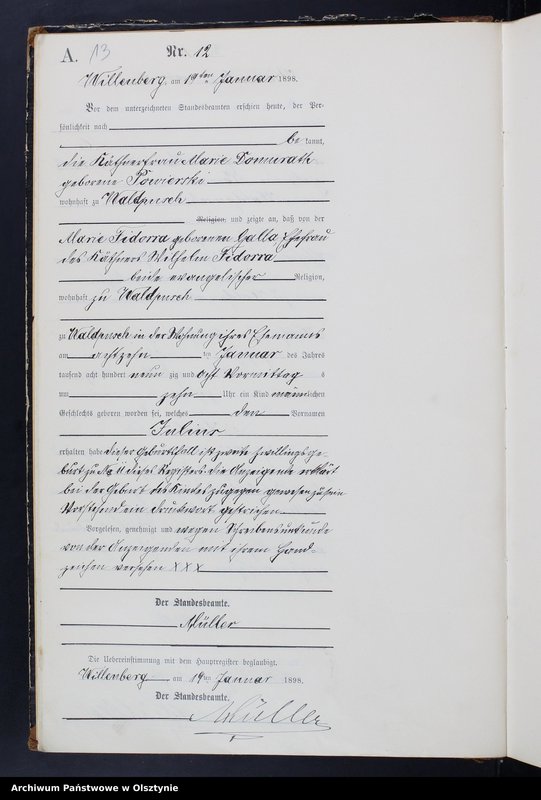 A. 13
Nr. 12
Willenberg, am 19ten Januar 1898.
Vor dem unterzeichneten Standesbeamten erschien heute, der Per-
sönlichkeit nach
bekannt,
die Käthnerfrau Marie Domnrath
geborene Powierski
wohnhaft zu Waldpusch
Religion, und zeigte an, daß von der
Marie Fidorra geborenen Galla Ehefrau
des Käthners Wilhelm Fidorra
beide evangelischer Religion,
wohnhaft zu Waldpusch
zu Waldpusch in der Wohnung ihres Ehemanns
am achtzehn ten Januar des Jahres
tausend acht hundert neun zig und acht Vormittag s
um zehn Uhr ein Kind männlichen
Geschlechts geboren worden sei, welches den Vornamen
Julius
erhalten habe dieser Geburtsfall ist zweite Zwillingsge-
burt zu No 11 dieses Registers die Anzeigende erklärt
bei der Geburt des Kindes zugegen gewesen zu sein
Vorstehend ein Druckwort gestrichen
Vorgelesen, genehmigt und wegen Schreibensunkunde
von der Anzeigenden mit ihrem Hand-
zeichen versehen XXX
Der Standesbeamte.
Müller
Die Uebereinstimmung mit dem Hauptregister beglaubigt.
Willenberg am 19ten Januar 1898.
Der Standesbeamte.
Müller
Archiwum Państwowe w Olsztynie